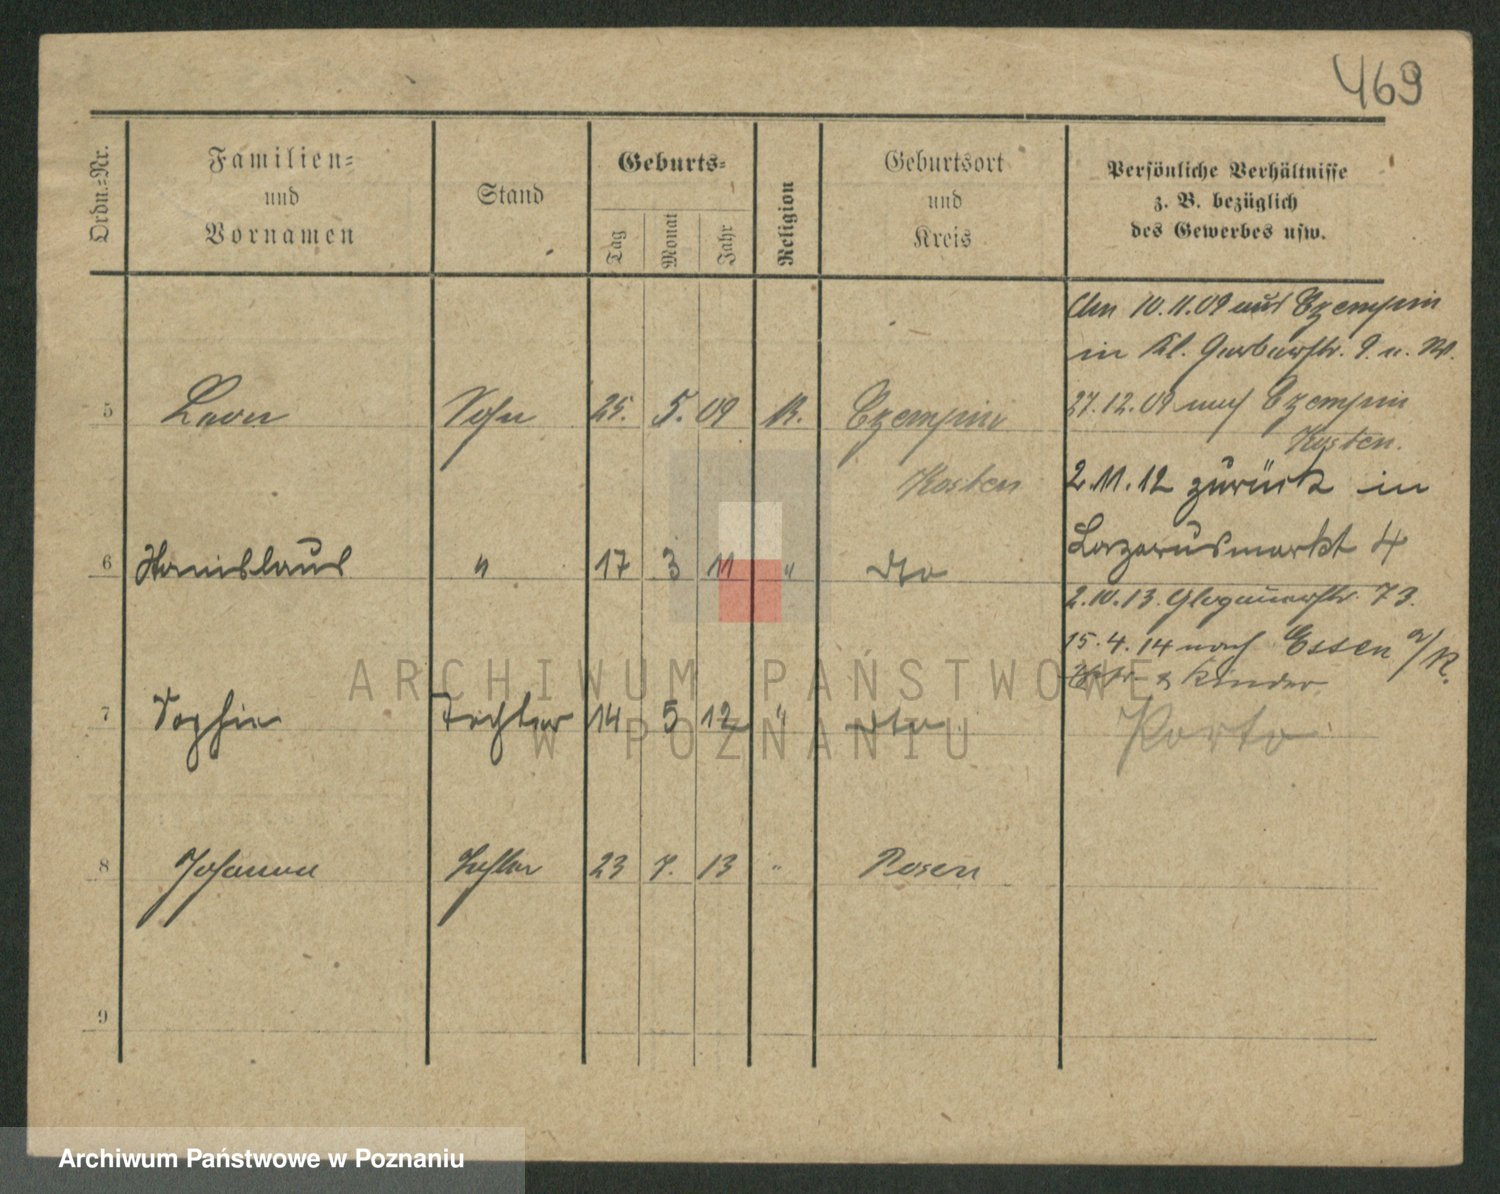 469
Ordn.-Nr.
Familien-
und
Vornamen
Stand
Geburts-
Tag
Monat
Jahr
Religion
Geburtsort
und
Kreis
Persönliche Verhältnisse
z. B. bezüglich
des Gewerbes usw.
Am 10.11.09 aus Czempin
in Kl. Gerberstr. 9 u. W.
5 Leon Sohn 25. 5. 09 R. Czempin 27.12.09 nach Czempin
Kosten.
Kosten 2.11.12 zurück in
Lazarusmarkt 4
6 Stanislaus " 17 3 11 " dto
2.10.13. Glogauerstr. 73.
15.4.14 nach Essen a/R.
Kinder
7 Sophie Tochter 14 5 12 " dto
Porto
8 Johanna Tochter 23 7. 13 " Posen
9
ARCHIWUM PAŃSTWOWE
W POZNANIU
Archiwum Państwowe w Poznaniu